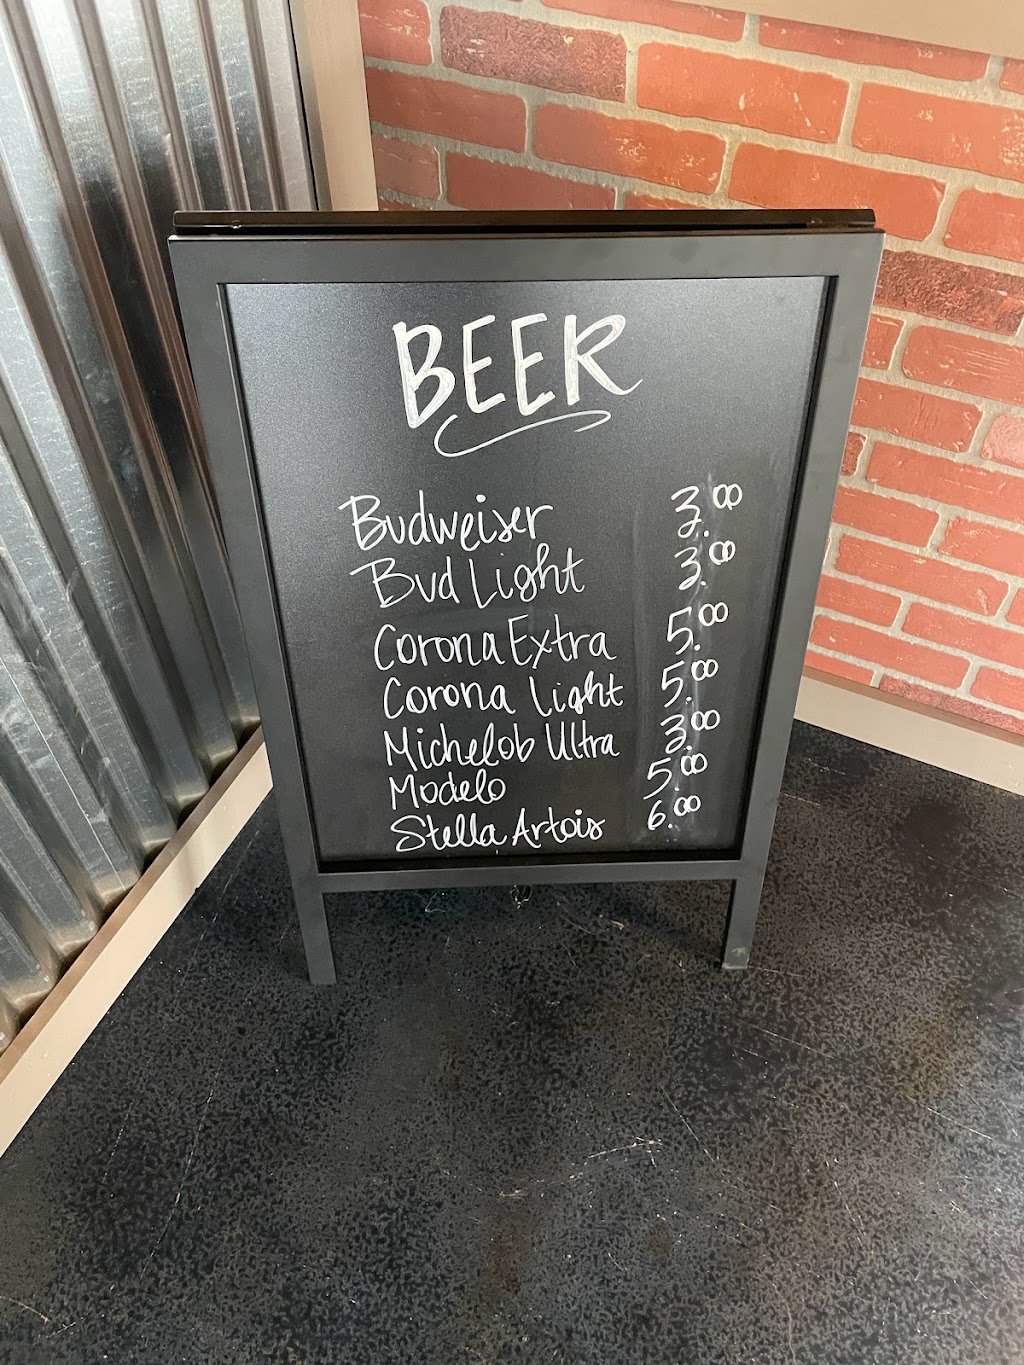 BEER
Budweiser 3.00
Bud Light 3.00
Corona Extra 5.00
Corona Light 5.00
Michelob Ultra 3.00
Modelo 5.00
Stella Artois 6.00